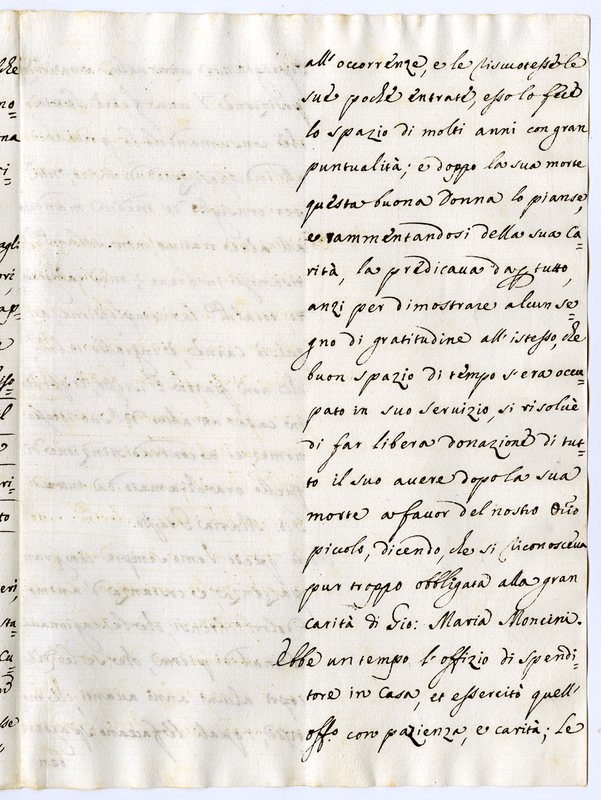 all' occorrenze, e le riscuotesse le
sue poche entrate, esso lo fece
lo spazio di molti anni con gran
puntualità; e doppo la sua morte
questa buona Donna lo pianse,
e rammentandosi della sua Ca=
rità, la predicava dapp tutto,
anzi per dimostrare alcun se=
gno di gratitudine all' istesso, che
buon spazio di tempo s'era occu=
pato in suo servizio, si risolvè
di far libera donazione di tut=
to il suo avere dopo la sua
morte a favor del nostro
piccolo, dicendo, che si riconosceva
pur troppo obbligata alla gran
carità di Gio: Maria Moncini.
Ebbe un tempo l'offizio di spendi=
tore in Casa, et essercitò quell'
offo. con pazienza, e carità; Le